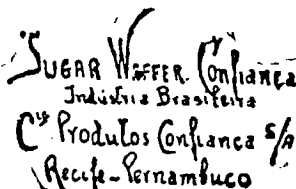 SUGAR WAFFER Confiança
Indústria Brasileira
Cia Produtos Confiança S/A
Recife - Pernambuco